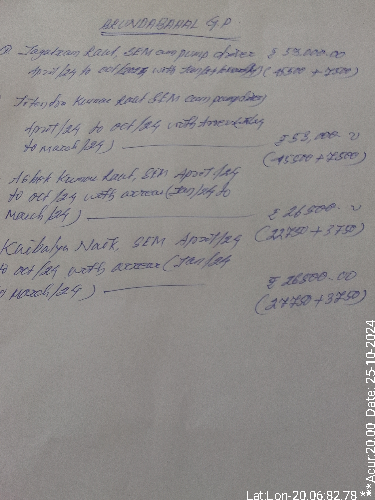 ARUNDABAHAL G.P
Jagatram Raut, SEM cum pump driver ₹ 53,000-00
April/24 to oct/24 with (45500 + 7500)
Jitendra Kumar Raut SEM cum pump driver
April/24 to oct/24 with
to March/24) ₹ 53,000-
(45500+7500)
Ashok Kumar Raut, SEM April/24
to oct/24 with arrear (Jan/24 to
March/24) ₹ 26500-
(22750 + 3750)
Kaibalya Naik, SEM April/24
to oct/24 with arrear (Jan/24
to March/24) ₹ 26500-00
(22750 + 3750)
Lat:Lon-20.06:82.78 ***Acur:20.00, Date: 25-10-2024